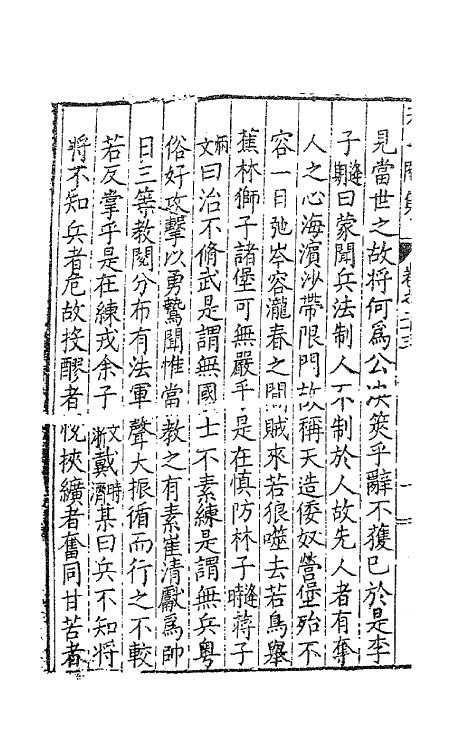 見當世之故將何爲公决筴乎辭不獲已於是李
子逢期曰蒙聞兵法制人不制於人故先人者有奪
人之心海濱沙帶限門故稱天造倭奴營堡殆不
容一日弛岑容瀧春之間賊來若狼噬去若鳥舉
蕉林獅子諸堡可無嚴乎是在慎防林子逢時蔣子
炳文曰治不脩武是謂無國士不素練是謂無兵粤
俗好攻擊以勇鷙聞惟當教之有素崔清獻爲帥
日三等教閱分布有法軍聲大振循而行之不較
若反掌乎是在練戎余子文浙戴濟時某曰兵不知將
將不知兵者危故投醪者悅挾纊者奮同甘苦者